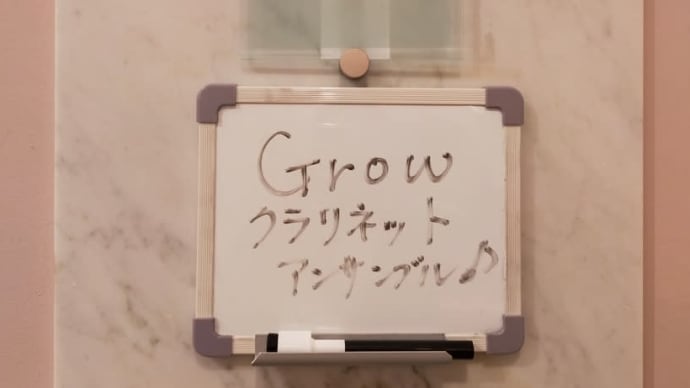 Grow
クラリネット
アンサンブル♪